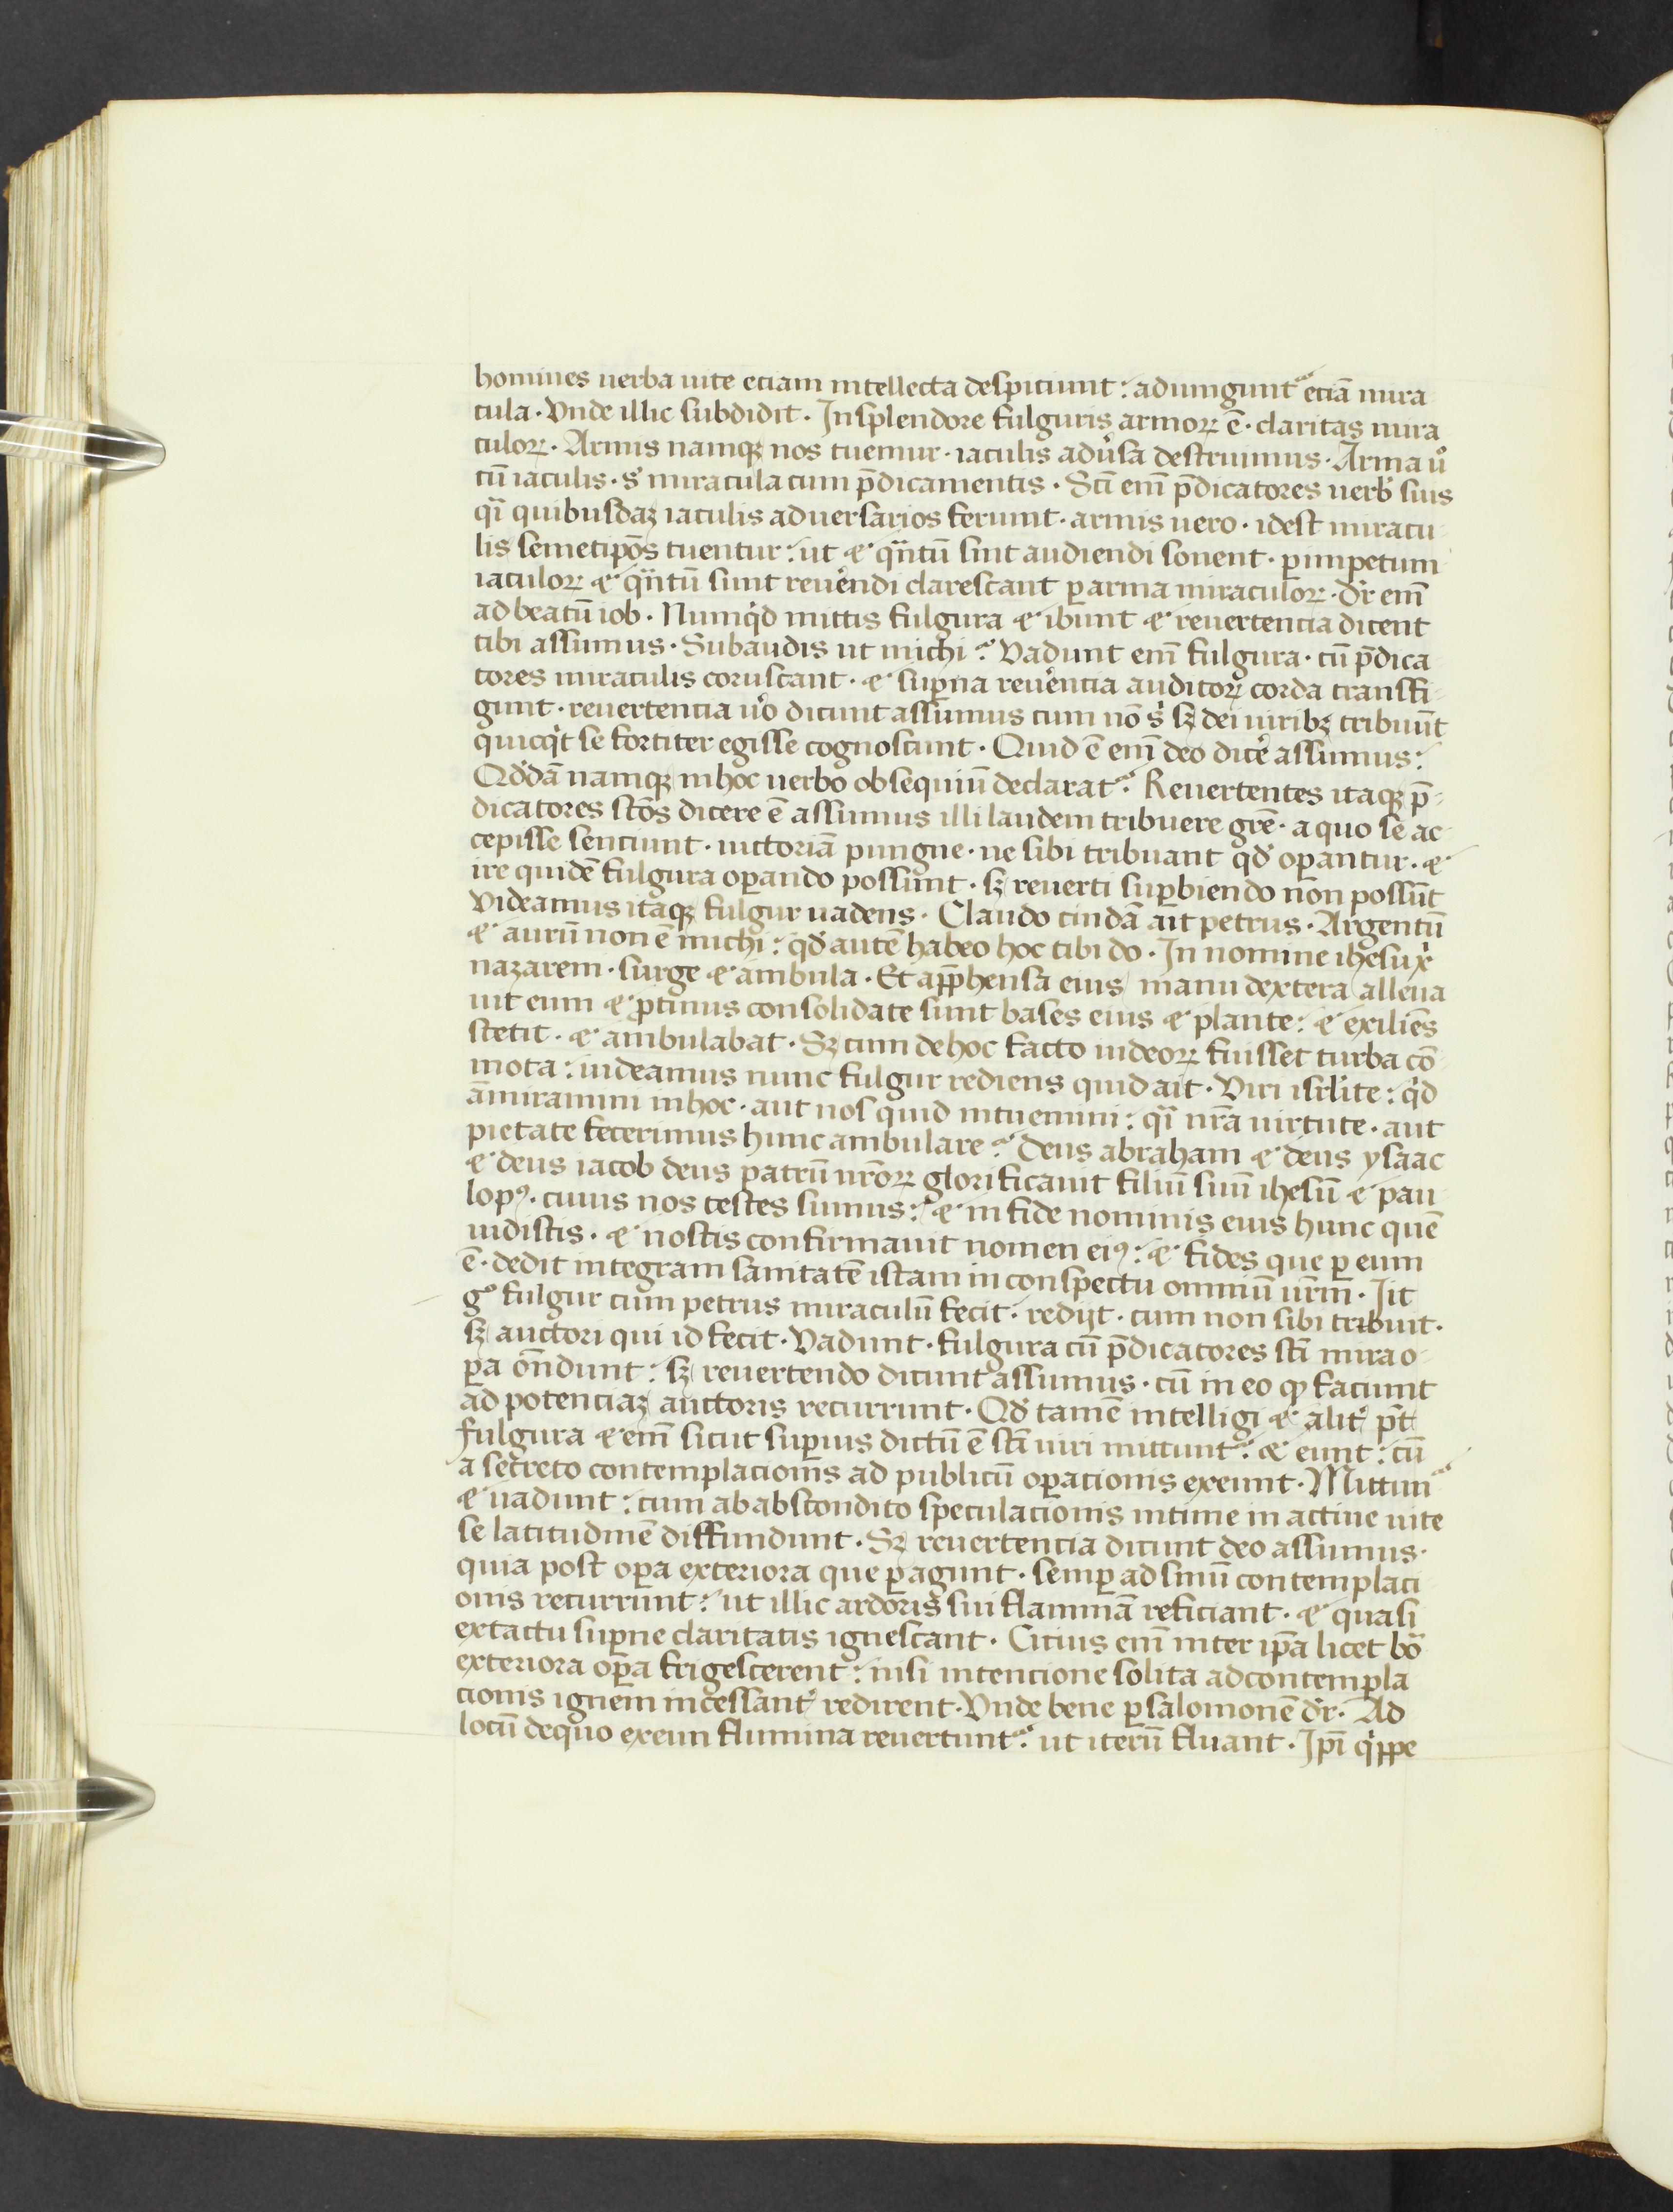 homines uerba uite eciam intellecta despiciunt : adiungunt᷑ eciā mira
cula · Vnde illic subdidit · In splendore fulguris armoꝝ ē · claritas mira
culoꝝ · Armis namqꝫ nos tuemur · iaculis adũsa destruimus · Arma uͦ
cū iaculis · sͭ miracula cum p̄dicamentis · Sc̄i em̄ p̄dicatores uerb̾ suis
qͣi quibusdaꝫ iaculis aduersarios feriunt · armis uero · idest miracu
lis semetip̄os tuentur : ut ⁊ qͣntū sint audiendi sonent · ꝑ impetum
iaculoꝝ ⁊ qͣntū sint reuerendi clarescant ꝑ arma miraculoꝝ · dr̄ em̄
ad beatū iob · Numqͥd mittis fulgura ⁊ ibunt ⁊ reuertencia dicent
tibi assumus · Subaudis ut michi ? Vadunt em̄ fulgura · cū p̄dica
tores miraculis coruscant · ⁊ suꝑna reuerencia auditoꝝ corda transfi
gunt · reuertencia u̾o dicunt assumus cum nō s̾ sꝫ dei uiribꝫ tribuūt
quicqͥt se fortiter egisse cognoscunt · Quid ē em̄ deo dice̾ assumus :
Qd̾dā namqꝫ in hoc uerbo obsequiū declarat᷑ · Reuertentes itaqꝫ p̄
dicatores sc̄os dicere ē assumus illi laudem tribuere gr̄e · a quo se ac
cepisse senciunt · uictoriā pungne · ne sibi tribuant qd̾ oꝑantur · ⁊
ire quidē fulgura oꝑando possunt · sꝫ reuerti suꝑbiendo non possūt
Videamus itaqꝫ fulgur uadens · Claudo cuidā ait petrus · Argentū
⁊ aurū non ē michi : qd̾ autē habeo hoc tibi do · In nomine ihesu xͥ
nazareni · surge ⁊ ambula · Et app̄hensa eius manu dextera alleua
uit eum ⁊ ꝓtinus consolidate sunt bases eius ⁊ plante : ⁊ exiliēs
stetit · ⁊ ambulabat · Sꝫ cum de hoc facto iudeoꝝ fuisset turba cō
mota : uideamus nunc fulgur rediens quid ait · Viri isrl̾ite : qͥd
āmiramini in hoc · aut nos quid intuemini : qͣi nr̄a uirtute · aut
pietate fecerimus hunc ambulare ? Deus abraham ⁊ deus ysaac
⁊ deus iacob deus patrū nr̄oꝝ glorificauit filiū suū ihesū ⁊ pau
lopꝰ · cuius nos testes sumus : ⁊ in fide nominis eius hunc quē
uidistis · ⁊ nostis confirmauit nomen eiꝰ : ⁊ fides que ꝑ eum
ē · dedit integram sanitatē istam in conspectu omniū ur̄m · Iit
gͦ fulgur cum petrus miraculū fecit · redijt · cum non sibi tribuit ·
sꝫ auctori qui id fecit · Vadunt · fulgura cū p̄dicatores sc̄i mira o
ꝑa on̄dunt : sꝫ reuertendo dicunt assumus · cū in eo qͦ faciunt
ad potenciaꝫ auctoris recurrunt · Qd̾ tamē intelligi ⁊ alit̾ pt̄
fulgura ⁊ em̄ sicut suꝑius dictū ē sc̄i uiri mittunt᷑ : ⁊ eunt : cū
a secreto contemplacionis ad publicū oꝑacionis exeunt · Mittun᷑
⁊ uadunt : cum ab abscondito speculacionis intime in actiue uite
se latitudinē diffundunt · Sꝫ reuertencia dicunt deo assumus ·
quia post oꝑa exteriora que ꝑagunt · semꝑ ad sinū contemplaci
onis recurrunt : ut illic ardoris sui flammā reficiant · ⁊ quasi
ex tactu suꝑne claritatis ignescant · Citius em̄ inter ip̄a licet bōͣ
exteriora oꝑa frigescerent : nisi intencione solita ad contempla
cionis ignem incessant̾ redirent · Vnde bene ꝑ salomonē dr̄ · Ad
locū de quo exeun flumina reuertunt᷑ : ut iterū fluant · Ip̄i qͥppe